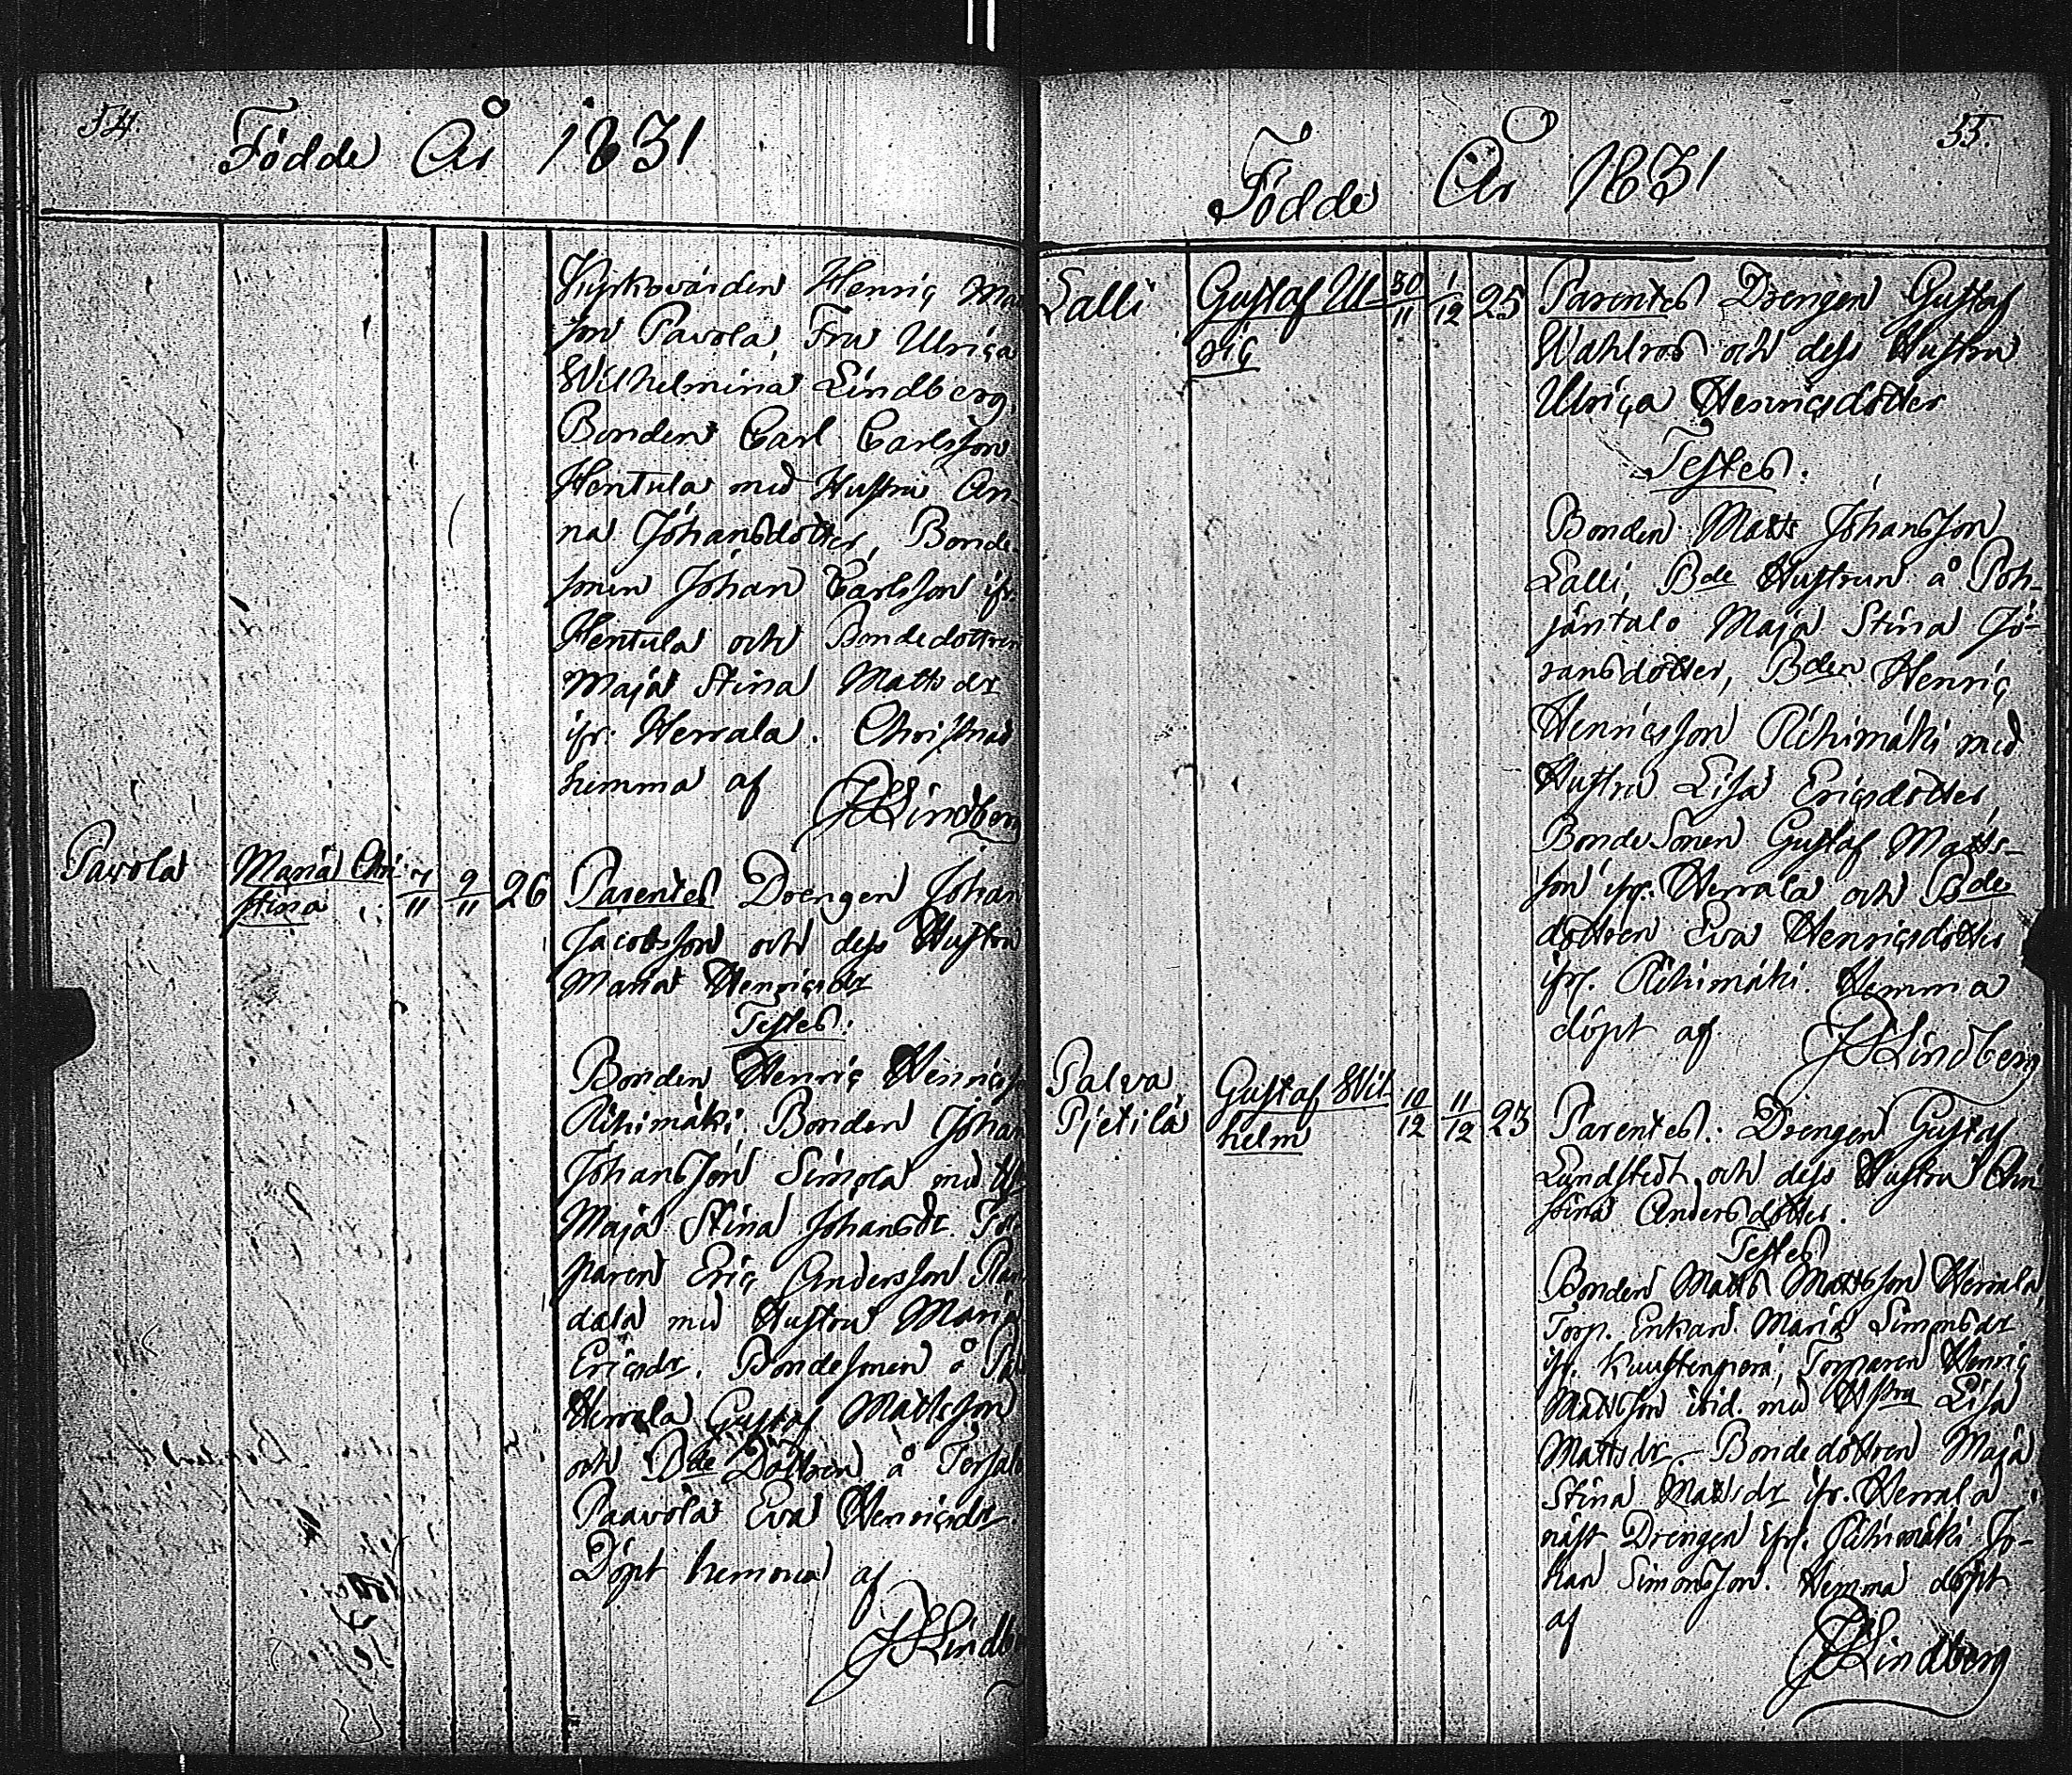 54.
Födde År 1831
Kyrkovärden Henric Mat
son Pavola, Fru Ulrica
Wilhelmina Lindberg,
Bonden Carl Carlsson
Hentula med Hustru An
na Johansdotter, Bonde
sonen Johan Carlsson ifr.
Hentula och Bondedottren
Maja Stina Mattsdr
ifr. Herrala. Christnad
hemma af JLindberg
Pavola
Maria Chri
stina
7/11
9/11
26
Parentes Drengen Johan
Jacobsson och dess Hustru
Maria Henricsdr
Testes:
Bonden Henric Henrics
Rihimäki, Bonden Johan
Johansson Simola med
Maja Stina Johansdr. Tor
paren Eric Andersson
dala med Hustru Maria
Ericsdr. Bondesonen å
Herrala Gustaf Mattsson
och Bde Dottren å
Paavola Eva Henricsdr
Döpt hemma af
JLindb
55.
Födde År 1831
Lalli
Gustaf Ul
ric
30/11
1/12
25
Parentes Drengen Gustaf
Wahlros och dess Hustru
Ulrica Henricsdotter
Testes:
Bonden Matts Johansson
Lalli, Bde Hustrun å Poh-
jäntalo Maja Stina Jö-
ransdotter, Bden Henric
Henricsson Rihimäki med
Hustru Lisa Ericsdotter,
BondeSonen Gustaf Matts-
son ifr. Herrala och Bde
dottren Eva Henricsdotter
ifr. Rihimäki. Hemma
döpt af JLindberg
Palva
Pjetilä
Gustaf Wil
helm
10/12
11/12
23
Parentes: Drengen Gustaf
Lundstedt och dess Hustru Chri
stina Andersdotter.
Testes
Bonden Matts Mattsson Herrala,
Torp. Enkan Maria Simonsdr
ifr. Kuustenperä, Torparen Henric
Mattsson ibid. med Hstru Lisa
Mattsdr. Bondedottren Maja
Stina Mattsdr ifr. Herrala
näst Drengen ifr. Rihimäki Jo-
han Simonsson. Hemma döpt
af
JLindberg